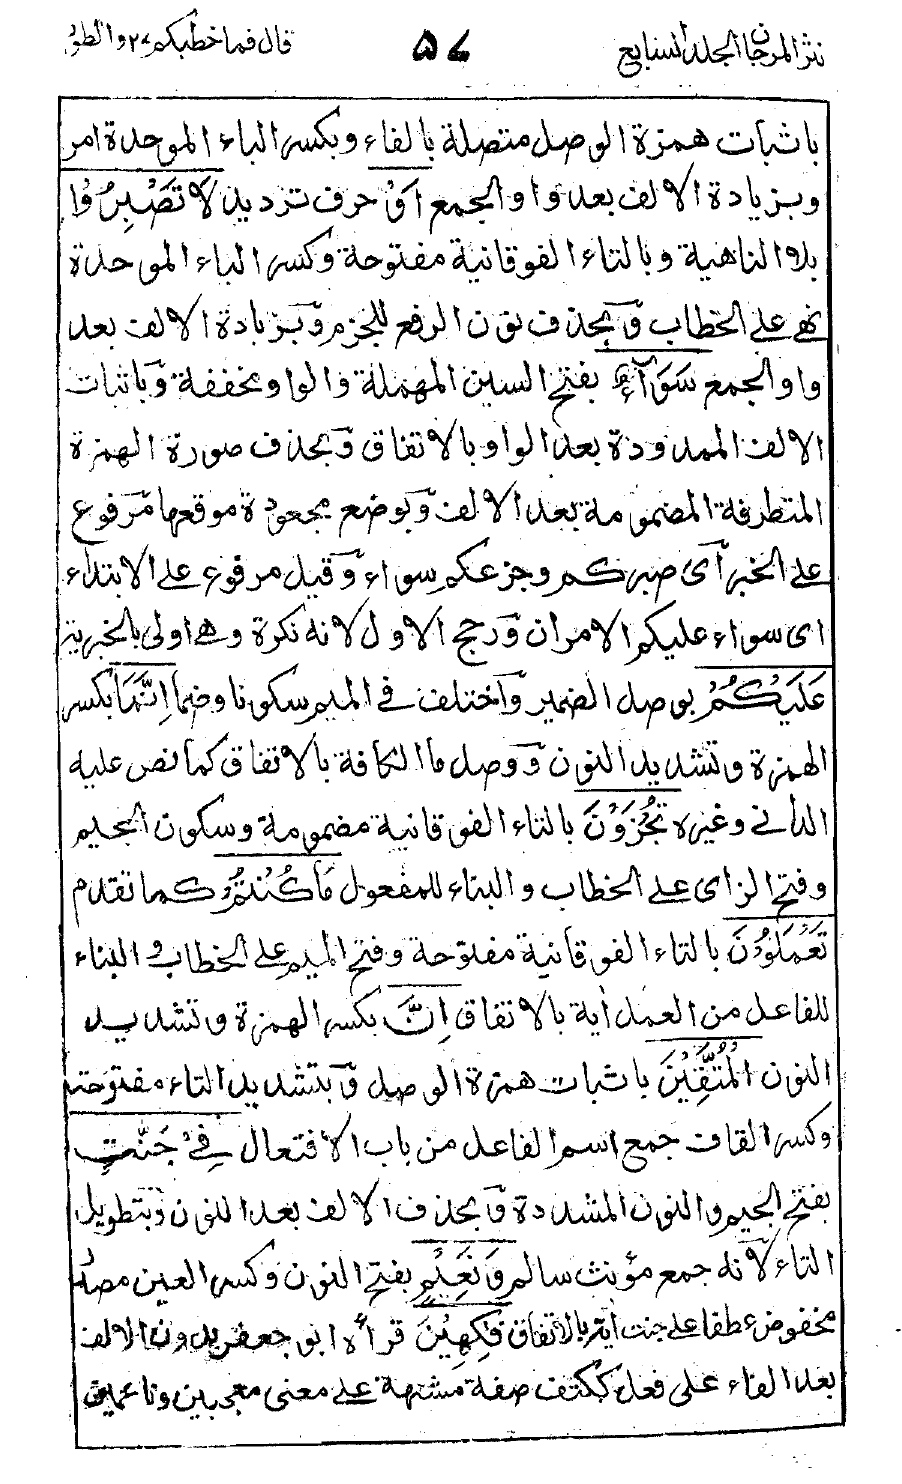 نثر المرجان المجلد السابع ٥٧ قال فما خطبكم ٢٧ والطور
باثبات همزة الوصل متصلة بالفاء وبكسر الباء الموحدة امر
وبزيادة الالف بعد واو الجمع اَوْ حرف ترديد لَا تَصْبِرُوْا
بلا الناهية وبالتاء الفوقانية مفتوحة وكسر الباء الموحدة
نهي على الخطاب وبحذف نون الرفع للجزم وبزيادة الالف بعد
واو الجمع سَوَآءٌ بفتح السين المهملة والواو مخففة وباثبات
الالف الممدودة بعد الواو بالاتفاق وبحذف صورة الهمزة
المتطرفة المضمومة بعد الالف وبوضع مجعودة موقعها مرفوع
على الخبر اى صبركم وجزعكم سواء وقيل مرفوع على الابتداء
اى سواء عليكم الامران ورجح الاول لانه نكرة وهى اولى بالخبرية
عَلَيْكُمْ بوصل الضمير واختلف فى الميم سكونا وضما اِنَّمَا بكسر
الهمزة وتشديد النون ووصل ما الكافة بالاتفاق كما نص عليه
الدانى وغيره تُجْزَوْنَ بالتاء الفوقانية مضمومة وسكون الجيم
وفتح الزاى على الخطاب والبناء للمفعول مَا كُنْتُمْ كما تقدم
تَعْمَلُوْنَ بالتاء الفوقانية مفتوحة وفتح الميم على الخطاب والبناء
للفاعل من العمل اية بالاتفاق اِنَّ بكسر الهمزة وتشديد
النون الْمُتَّقِيْنَ باثبات همزة الوصل وبتشديد التاء مفتوحة
وكسر القاف جمع اسم الفاعل من باب الافتعال فِىْ جَنّٰتٍ
بفتح الجيم والنون المشددة وبحذف الالف بعد النون وبتطويل
التاء لانه جمع مؤنث سالم وَنَعِيْمٍ بفتح النون وكسر العين مصدر
مخفوض عطفا على جنت اية بالاتفاق فٰكِهِيْنَ قرأه ابو جعفر بدون الالف
بعد الفاء على فعل ككتف صفة مشبهة على معنى معجبين وناعمين